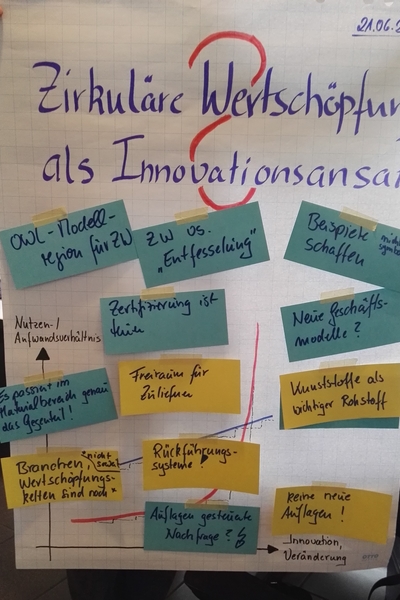 21.06.2
Zirkuläre Wertschöpfun
als Innovationsansa
OWL-Modell-
region für ZW
ZW vs.
"Entfesselung"
Beispiele
schaffen
Zertifizierung ist
Neue Geschäfts-
modelle?
Nutzen-/
Aufwandsverhältnis
Freiraum für
Zulieferer
Kunststoffe als
wichtiger Rohstoff
Es passiert im
Materialbereich genau
das Gegenteil!
Branchen,
Wertschöpfungs-
ketten sind noch
nicht
Rückführungs-
systeme?
Auflagen gesteuerte
Nachfrage?
keine neue
Auflagen!
Innovation,
Veränderung